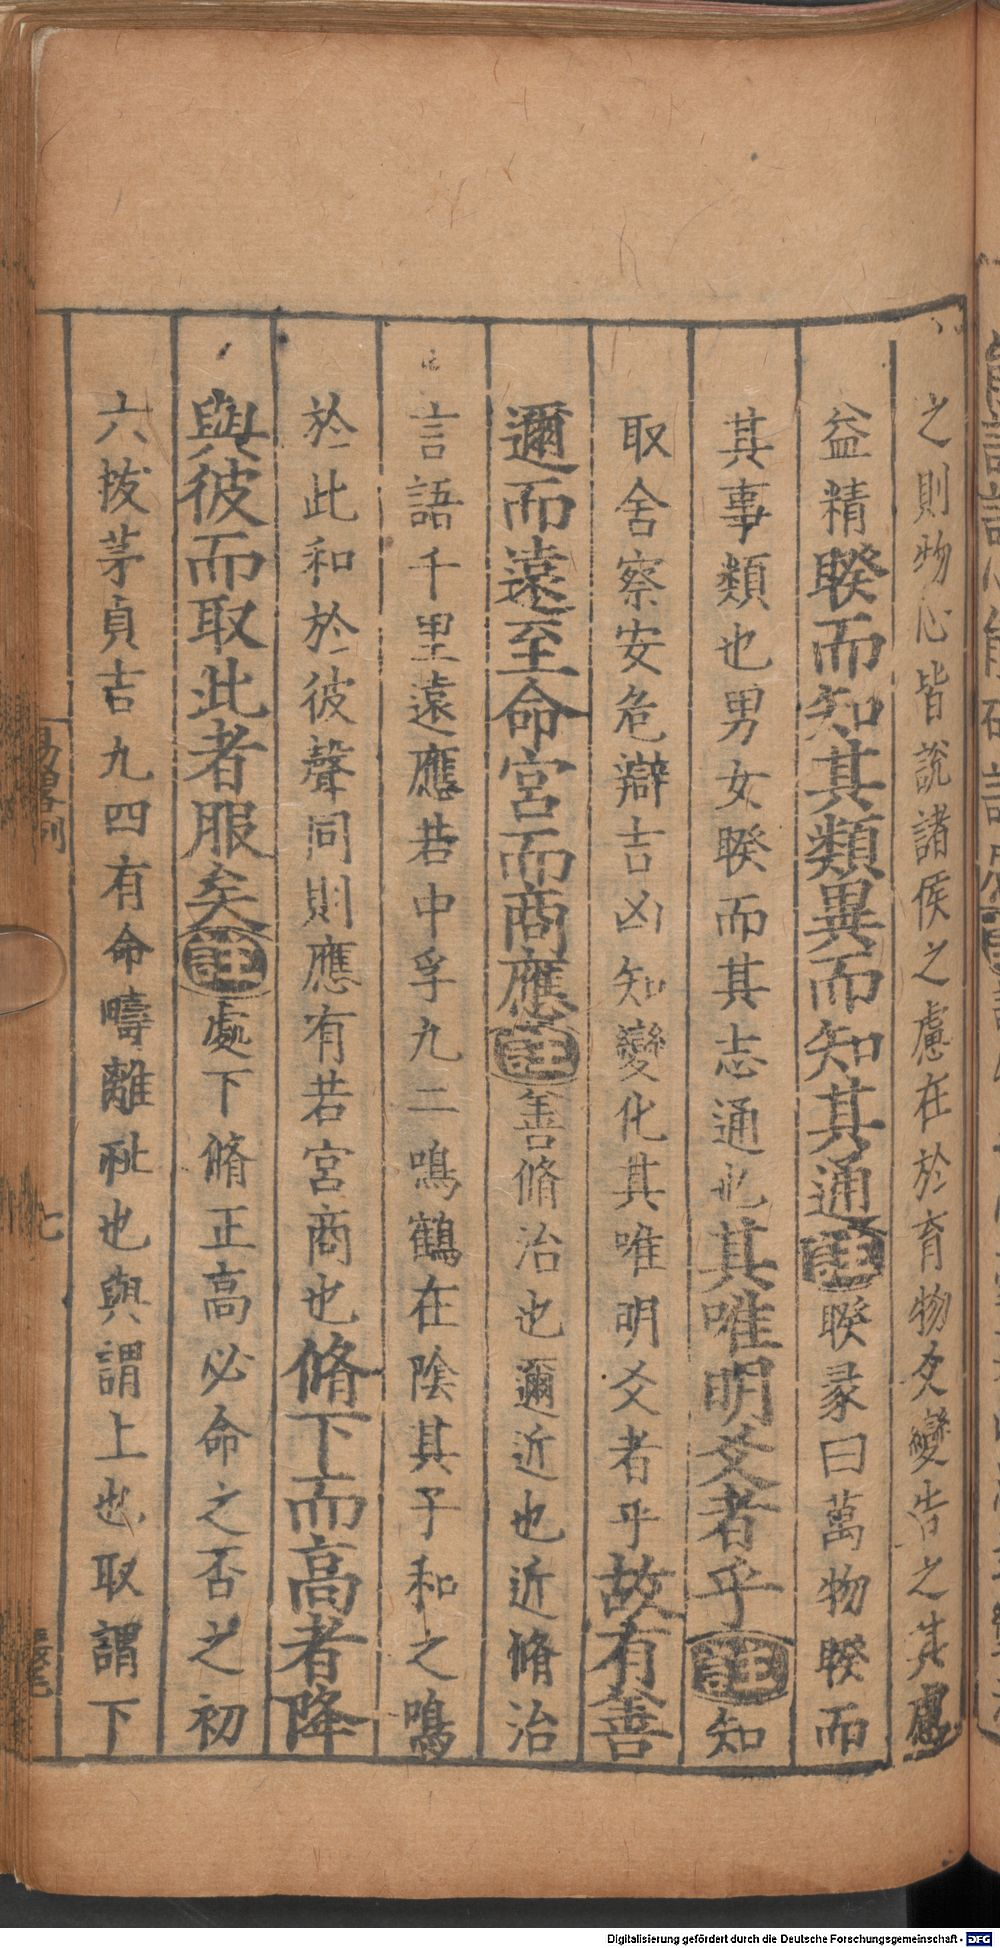 之則物心皆說諸侯之慮在於育物爻變告之其慮
益精睽而知其類異而知其通註睽彖曰萬物睽而
其事類也男女睽而其志通也其唯明爻者乎註知
取舍察安危辯吉凶知變化其唯明爻者乎故有善
邇而遠至命宮而商應註善脩治也邇近也近脩治
言語千里遠應若中孚九二鳴鶴在陰其子和之鳴
於此和於彼聲同則應有若宮商也脩下而高者降
與彼而取此者服矣註處下脩正高必命之否之初
六拔茅貞吉九四有命疇離祉也與謂上也取謂下
易畧例
七
Digitalisierung gefördert durch die Deutsche Forschungsgemeinschaft - DFG